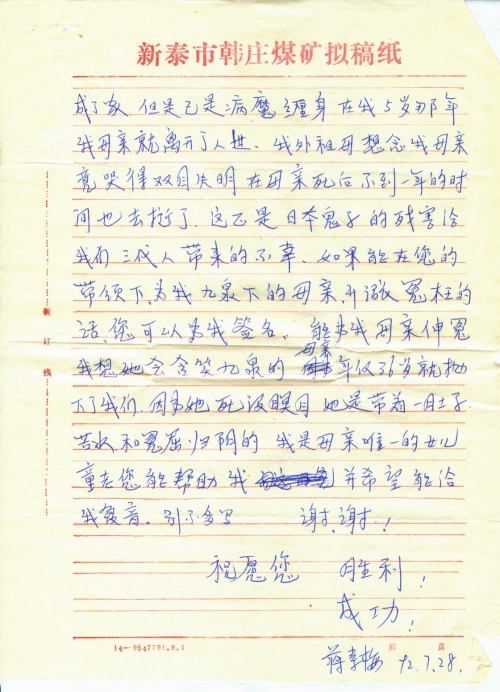 新泰市韩庄煤矿拟稿纸
成了家，但是已是病魔缠身在我5岁那年
我母亲就离开了人世、我外祖母想念我母亲
竟哭得双目失明在母亲死后不到一年的时
间也去世了，这乙是日本鬼子的残害给
我们三代人带来的不幸，如果能在您的
带领下，为我九泉下的母亲，冤枉的
话，您可以为我签名，能为我母亲伸冤
我想她会含笑九泉的母亲年仅36岁就抛
下了我们，因为她死没瞑目她是带着一肚子
苦水和冤屈归阴的我是母亲唯一的女儿
童老您能帮助我并希望能给
我复音。别不多写 谢，谢！
祝愿您 胜利！
成功！
蒋 梅 92.7.28.
装订线
14—9547791.8.1
第 页